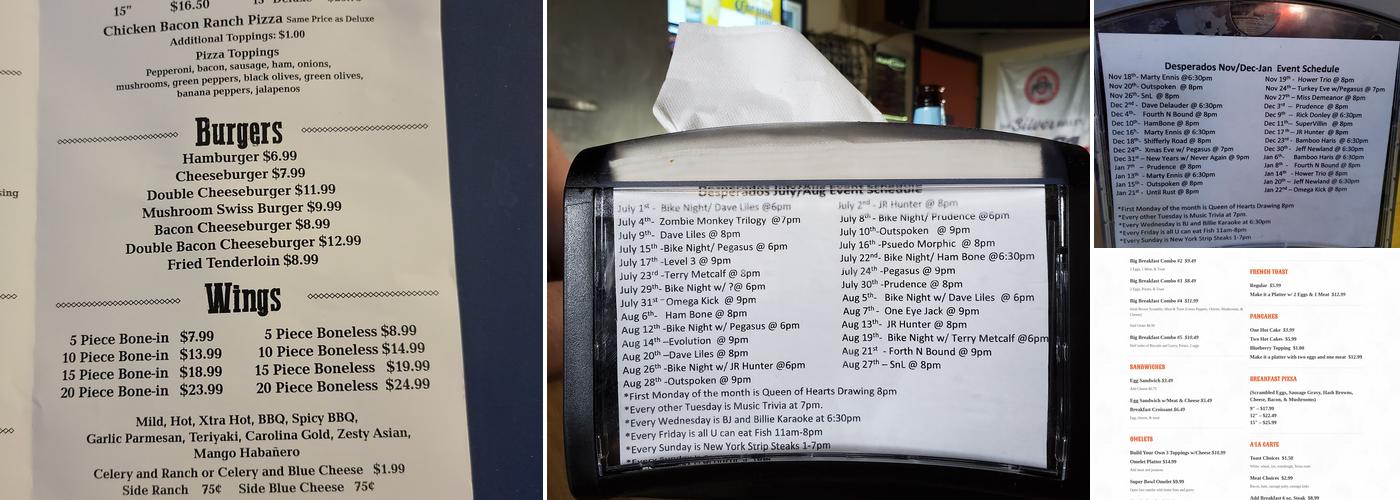 15" $16.50 15"
Chicken Bacon Ranch Pizza Same Price as Deluxe
Additional Toppings: $1.00
Pizza Toppings
Pepperoni, bacon, sausage, ham, onions,
mushrooms, green peppers, black olives, green olives,
banana peppers, jalapenos
Burgers
Hamburger $6.99
Cheeseburger $7.99
Double Cheeseburger $11.99
Mushroom Swiss Burger $9.99
Bacon Cheeseburger $8.99
Double Bacon Cheeseburger $12.99
Fried Tenderloin $8.99
Wings
5 Piece Bone-in $7.99 5 Piece Boneless $8.99
10 Piece Bone-in $13.99 10 Piece Boneless $14.99
15 Piece Bone-in $18.99 15 Piece Boneless $19.99
20 Piece Bone-in $23.99 20 Piece Boneless $24.99
Mild, Hot, Xtra Hot, BBQ, Spicy BBQ,
Garlic Parmesan, Teriyaki, Carolina Gold, Zesty Asian,
Mango Habañero
Celery and Ranch or Celery and Blue Cheese $1.99
Side Ranch 75¢ Side Blue Cheese 75¢
Desperados July/Aug Event Schedule
July 1st - Bike Night/ Dave Liles @6pm
July 4th- Zombie Monkey Trilogy @7pm
July 9th- Dave Liles @ 8pm
July 15th -Bike Night/ Pegasus @ 6pm
July 17th -Level 3 @ 9pm
July 23rd -Terry Metcalf @ 8pm
July 29th- Bike Night w/ ?@ 6pm
July 31st – Omega Kick @ 9pm
Aug 6th- Ham Bone @ 8pm
Aug 12th –Bike Night w/ Pegasus @ 6pm
Aug 14th –Evolution @ 9pm
Aug 20th –Dave Liles @ 8pm
Aug 26th -Bike Night w/ JR Hunter @6pm
Aug 28th -Outspoken @ 9pm
July 2nd - JR Hunter @ 8pm
July 8th- Bike Night/ Prudence @6pm
July 10th-Outspoken @ 9pm
July 16th -Psuedo Morphic @ 8pm
July 22nd- Bike Night/ Ham Bone @6:30pm
July 24th -Pegasus @ 9pm
July 30th -Prudence @ 8pm
Aug 5th- Bike Night w/ Dave Liles @ 6pm
Aug 7th- One Eye Jack @ 9pm
Aug 13th- JR Hunter @ 8pm
Aug 19th- Bike Night w/ Terry Metcalf @6pm
Aug 21st - Forth N Bound @ 9pm
Aug 27th – SnL @ 8pm
*First Monday of the month is Queen of Hearts Drawing 8pm
*Every other Tuesday is Music Trivia at 7pm.
*Every Wednesday is BJ and Billie Karaoke at 6:30pm
*Every Friday is all U can eat Fish 11am-8pm
*Every Sunday is New York Strip Steaks 1-7pm
Desperados Nov/Dec-Jan Event Schedule
Nov 18th- Marty Ennis @6:30pm
Nov 20th- Outspoken @ 8pm
Nov 26th- SnL @ 8pm
Dec 2nd - Dave Delauder @ 6:30pm
Dec 4th- Fourth N Bound @ 8pm
Dec 10th- HamBone @ 8pm
Dec 16th- Marty Ennis @ 6:30pm
Dec 18th- Shifferly Road @ 8pm
Dec 24th- Xmas Eve w/ Pegasus @ 7pm
Dec 31st – New Years w/ Never Again @ 9pm
Jan 7th – Prudence @ 8pm
Jan 13th - Marty Ennis @ 6:30pm
Jan 15th - Outspoken @ 8pm
Jan 21st – Until Rust @ 8pm
Nov 19th- Hower Trio @ 8pm
Nov 24th – Turkey Eve w/Pegasus @ 7pm
Nov 27th – Miss Demeanor @ 8pm
Dec 3rd – Prudence @ 8pm
Dec 9th – Rick Donley @ 6:30pm
Dec 11th– SuperVillin @ 8pm
Dec 17th – JR Hunter @ 8pm
Dec 23rd- Bamboo Haris @ 6:30pm
Dec 30th - Jeff Newland @ 6:30pm
Jan 6th- Bamboo Haris @ 6:30pm
Jan 8th- Fourth N Bound @ 8pm
Jan 14th- Hower Trio @ 8pm
Jan 20th – Jeff Newland @ 6:30pm
Jan 22nd – Omega Kick @ 8pm
*First Monday of the month is Queen of Hearts Drawing 8pm
*Every other Tuesday is Music Trivia at 7pm.
*Every Wednesday is BJ and Billie Karaoke @ 6:30pm
*Every Friday is all U can eat Fish 11am-8pm
*Every Sunday is New York Strip Steaks 1-7pm
Big Breakfast Combo #2 $9.49
2 Eggs, 1 Meat, & Toast
Big Breakfast Combo #3 $8.49
2 Eggs, Potato, & Toast
Big Breakfast Combo #4 $11.99
Half Order $8.99
Big Breakfast Combo #5 $10.49
SANDWICHES
Egg Sandwich $3.49
Add Cheese $0.75
Egg Sandwich w/Meat & Cheese $5.49
Breakfast Croissant $6.49
Egg, cheese, & meat
OMELETS
Build Your Own 3 Toppings w/Cheese $10.99
Omelet Platter $14.99
Add meat and potatoes
Super Bowl Omelet $9.99
FRENCH TOAST
Regular $5.99
Make it a Platter w/ 2 Eggs & 1 Meat $12.99
PANCAKES
One Hot Cake $3.99
Two Hot Cakes $5.99
Blueberry Topping $1.00
Make it a platter with two eggs and one meat $12.99
BREAKFAST PIZZA
(Scrambled Eggs, Sausage Gravy, Hash Browns,
Cheese, Bacon, & Mushrooms)
9" – $17.99
12" – $22.49
15" – $25.99
A'LA CARTE
Toast Choices $1.50
White, wheat, rye, sourdough, Texas toast
Meat Choices $2.99
Bacon, ham, sausage patty, sausage links
Add Breakfast 6 oz. Steak $8.99